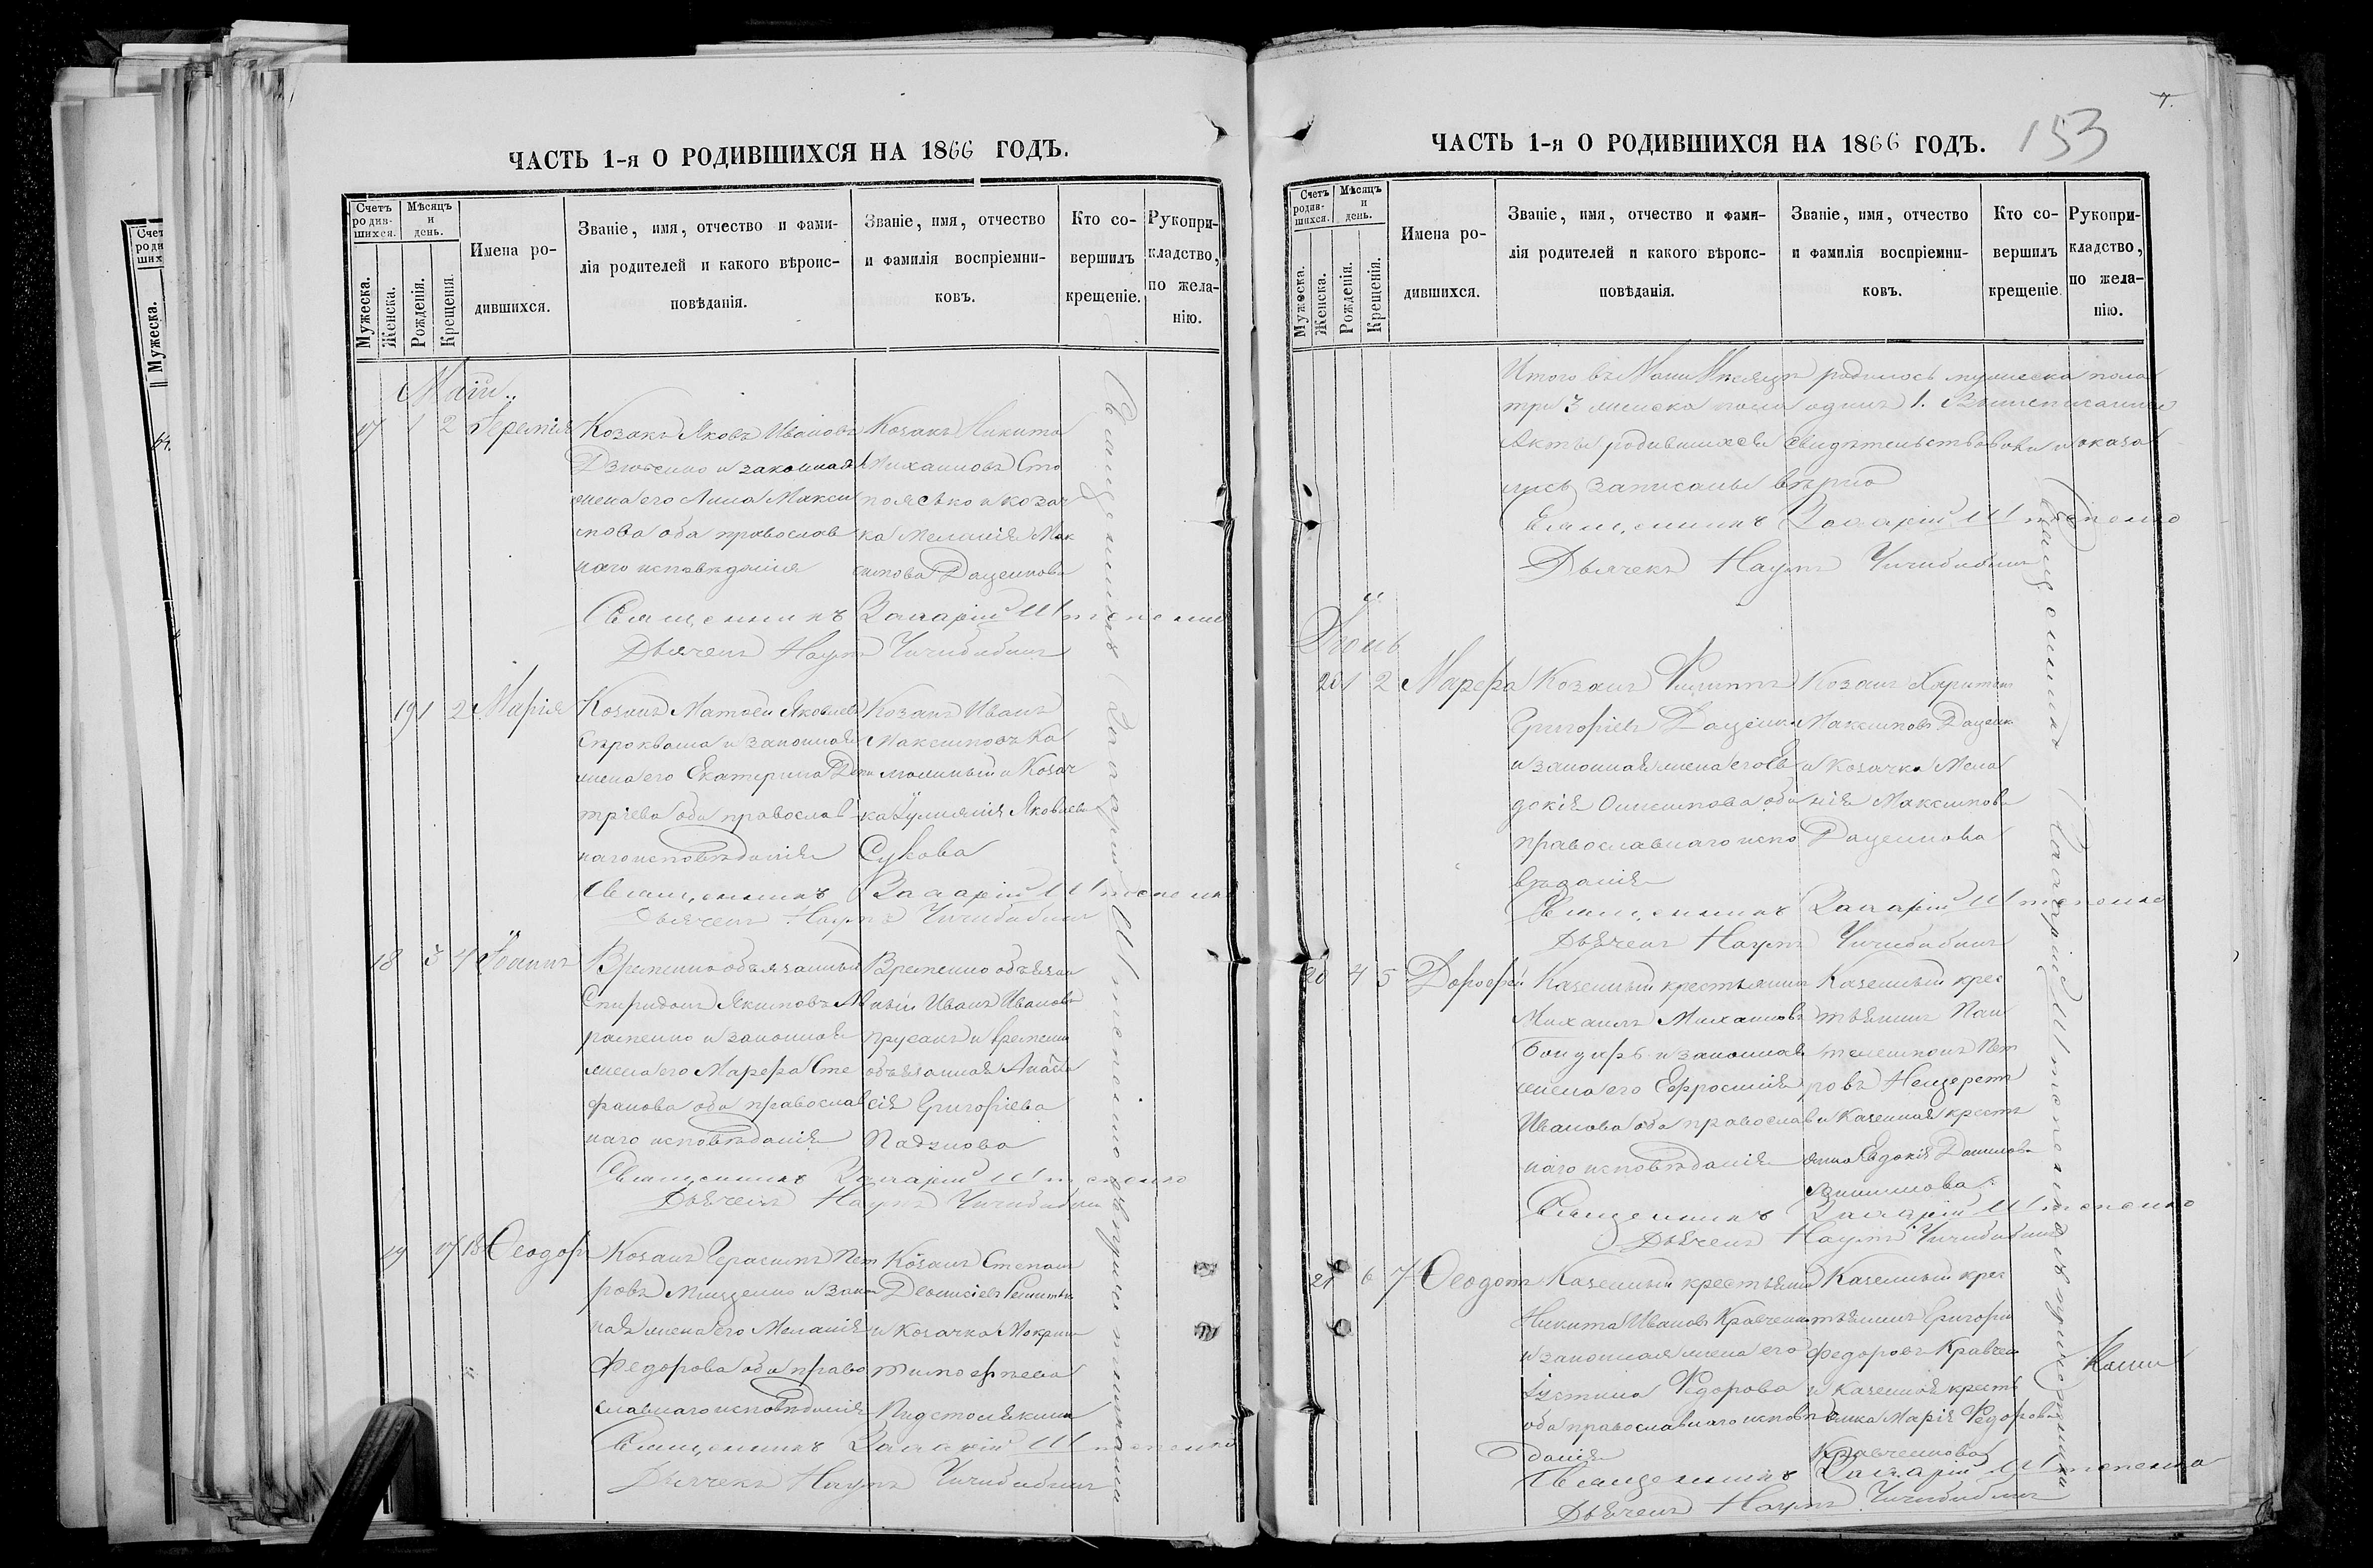 ЧАСТЬ 1-я О РОДИВШИХСЯ НА 1866 ГОДЪ.
Счетъ родив-шихся.
Мѣсяцъ и день.
Мужеска.
Женска.
Рожденія.
Крещенія.
Имена ро-
дившихся.
Званіе, имя, отчество и фами-
лія родителей и какого вѣроис-
повѣданія.
Званіе, имя, отчество
и фамилія воспріемни-
ковъ.
Кто со-
вершилъ
крещеніе.
Рукопри-
кладство,
по жела-
нію.
17 1 2 Іеремія
Козакъ Яковъ Ивановъ
и законная
жена его Анна Макси
мова оба православ
наго исповѣданія
Козакъ Никита
Михаиловъ Сто
и козач
ка Меланія Мак
симова Даценкова
Священникъ Захарій
Дьячекъ Наумъ Чичибабинъ
19 1 2 Марія
Козакъ Матвей Яковлевъ
Сѣрокваша и законная
жена его Екатерина Дми
тріева оба православ
наго исповѣданія
Козакъ Иванъ
Максимовъ Ка
и Козач
ка Іулиянія Яковлева
Сукова
Священникъ Захарій
Дьячекъ Наумъ Чичибабинъ
18 3 4 Іоаннъ
Временно обязанный
Спиридонъ Якимовъ
и законная
жена его Марфа Сте
фанова оба православ
наго исповѣданія
Временно обязан
ный Иванъ Ивановъ
Прусакъ и временно
обязанная Анаста
сія Григоріева
Священникъ Захарій
Дьячекъ Наумъ Чичибабинъ
19 17 18 Ѳеодоръ
Козакъ Герасимъ Пет
ровъ Мищенко и закон
ная жена его Меланія
Федорова оба право
славнаго исповѣданія
Козакъ Степанъ
и козачка Мокрина
Тимофѣева
Священникъ Захарій
Дьячекъ Наумъ Чичибабинъ
7.
153
ЧАСТЬ 1-я О РОДИВШИХСЯ НА 1866 ГОДЪ.
Счетъ родив-шихся.
Мѣсяцъ и день.
Мужеска.
Женска.
Рожденія.
Крещенія.
Имена ро-
дившихся.
Званіе, имя, отчество и фами-
лія родителей и какого вѣроис-
повѣданія.
Званіе, имя, отчество
и фамилія воспріемни-
ковъ.
Кто со-
вершилъ
крещеніе.
Рукопри-
кладство,
по жела-
нію.
Итого въ Маіи Мѣсяцѣ родилось мужеска пола
три 3 женска пола одинъ 1. Вышеписанные
Акты родившихся свидѣтельствовали и оказа
лись записаны вѣрно
Священникъ Захарій
Дьячекъ Наумъ Чичибабинъ
Іюнь
20 1 2 Марфа
Козакъ Филиппъ
Григоріевъ Даценко
и законная жена его Ев
докія оба
православнаго испо
вѣданія
Козакъ Харитонъ
Максимовъ Даценко
и Козачка Мела
нія Максимова
Даценкова
Священникъ Захарій
Дьячекъ Наумъ Чичибабинъ
20 4 5 Дорофей
Казенный крестьянинъ
Михаилъ Михаиловъ
Бондарь и законная
жена его Ефросинія
Иванова оба православ
наго исповѣданія
Казенный крес
тьянинъ Пан
телеимонъ Пет
ровъ Нещеретъ
и Казенная кресть
янка Евдокія Данилова
Священникъ Захарій
Дьячекъ Наумъ Чичибабинъ
21 6 7 Ѳеодотъ
Казенный крестьянинъ
Никита Ивановъ Кравченко
и законная жена его
Іустина Федорова
оба православнаго исповѣ
данія
Казенный крес
тьянинъ Григорій
Федоровъ Кравчен
и казенная кресть
янка Марія Федорова
Кравченкова
Священникъ Захарій
Дьячекъ Наумъ Чичибабинъ